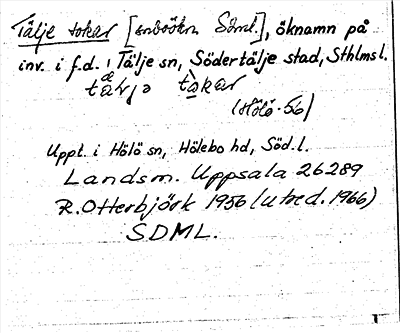 Tälje tokar [inbokn Söml.], öknamn på
inv. i f.d. Tälje sn, Södertälje stad, Sthlms l.
tokar
(Hölö-56)
Uppt. i Hölö sn, Hölebo hd, Söd. l.
Landsm. Uppsala 26289
R. Otterbjörk 1956 (utred. 1966)
SDML.